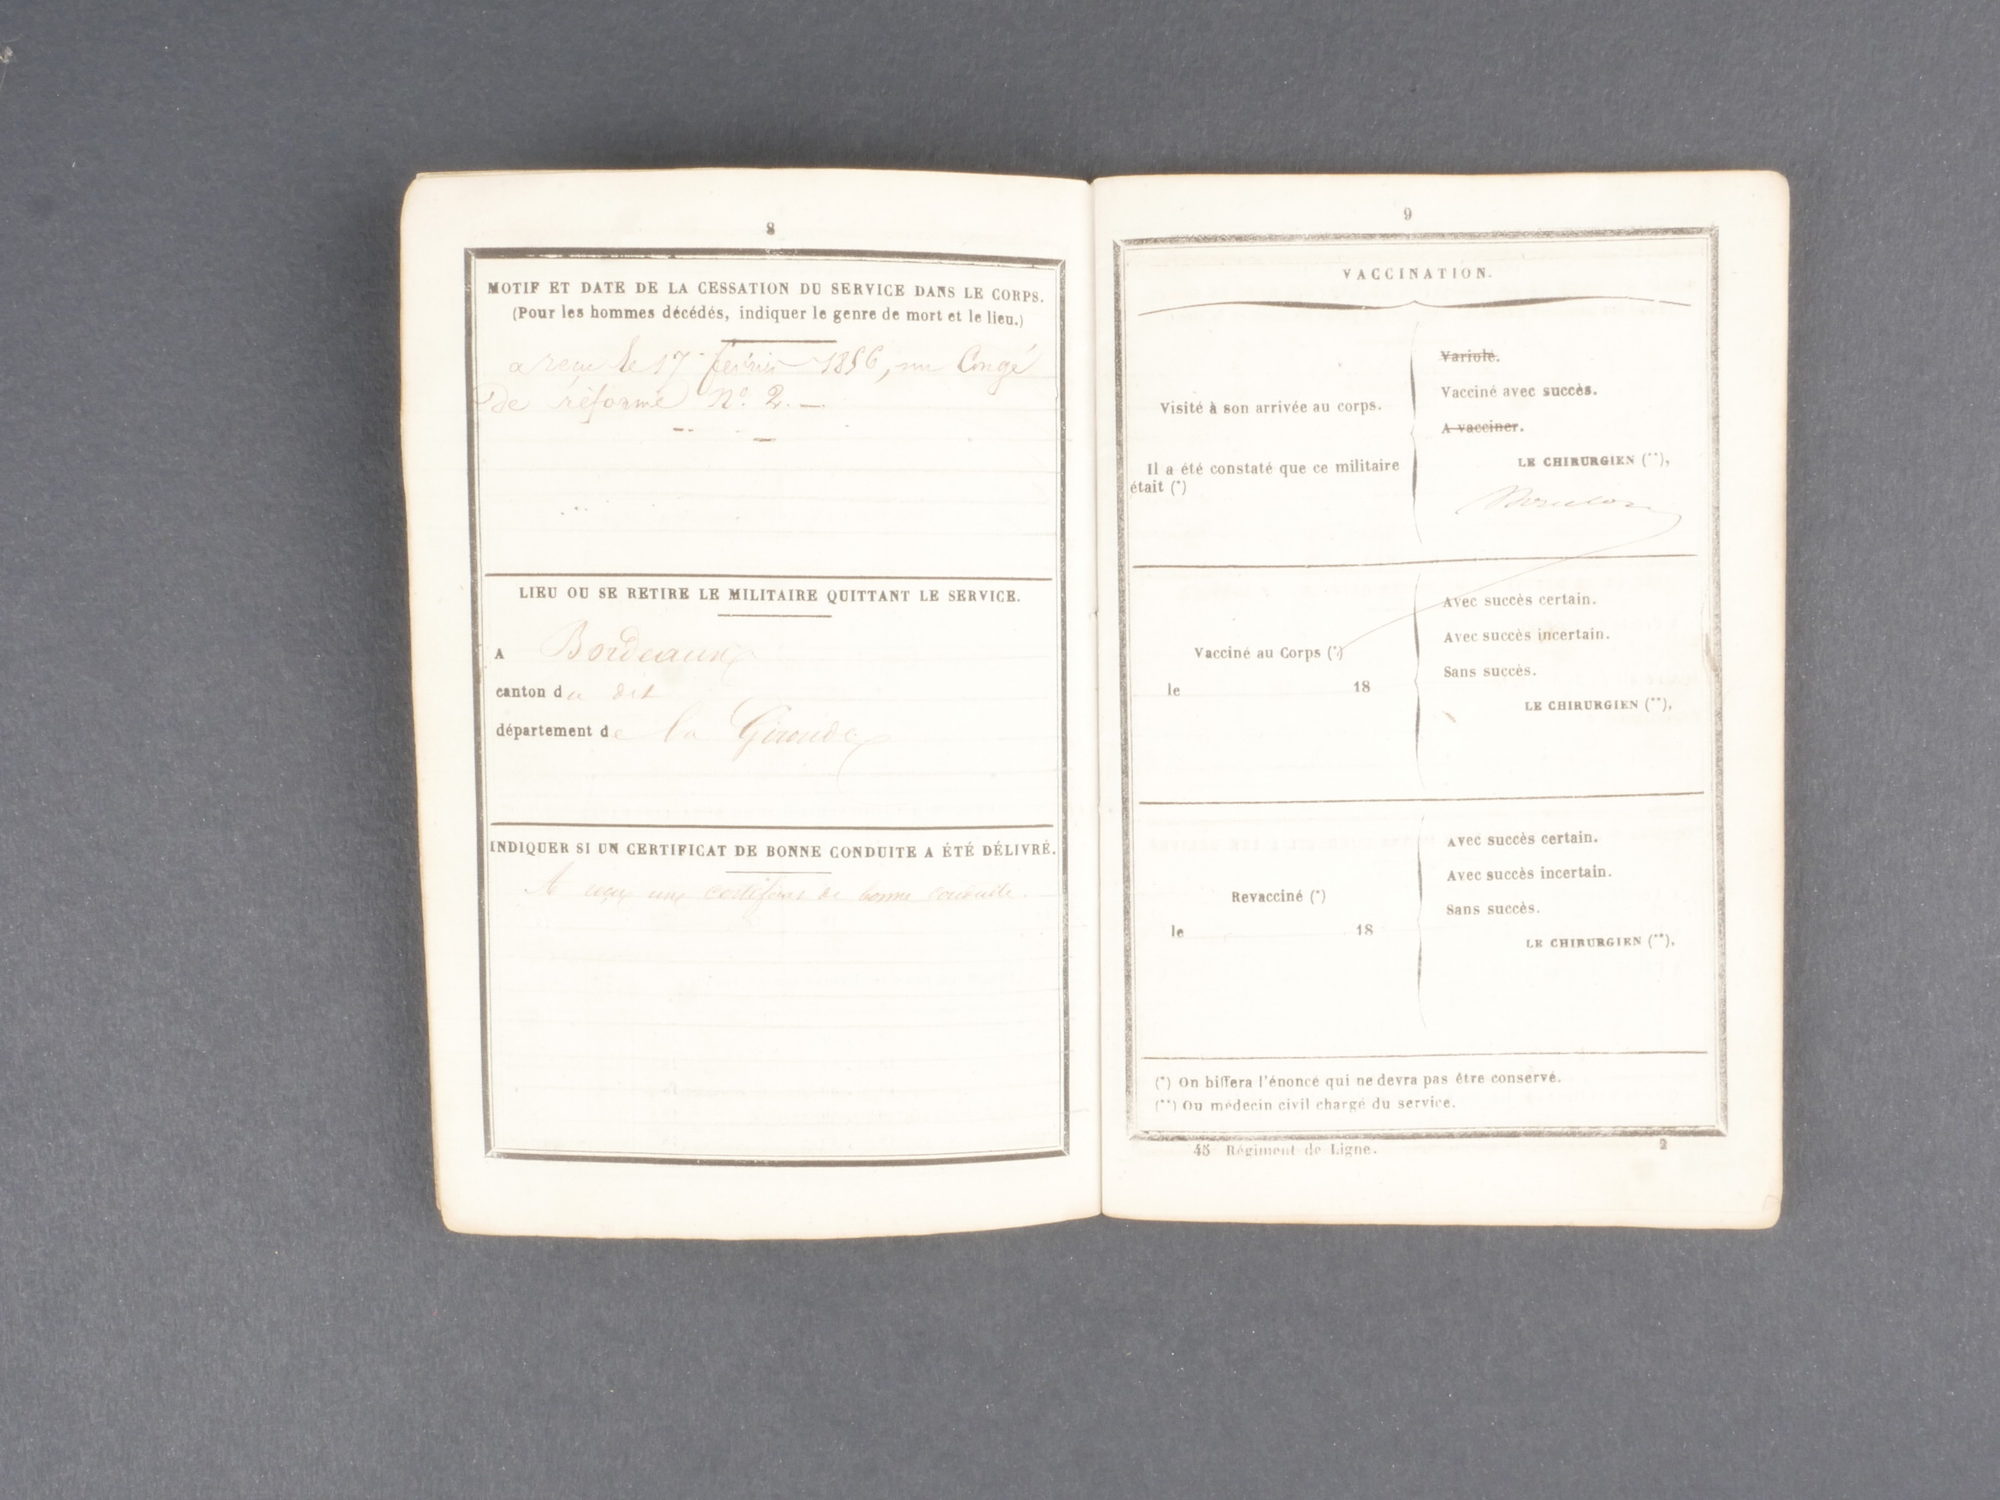 8
MOTIF ET DATE DE LA CESSATION DU SERVICE DANS LE CORPS.
(Pour les hommes décédés, indiquer le genre de mort et le lieu.)
a reçu le 17 février 1856, un Congé
De réforme No. 2. —
LIEU OU SE RETIRE LE MILITAIRE QUITTANT LE SERVICE.
A Bordeaux
canton du dit
département de la Gironde
INDIQUER SI UN CERTIFICAT DE BONNE CONDUITE A ÉTÉ DÉLIVRÉ.
A reçu un certificat de bonne conduite.
9
VACCINATION.
Visité à son arrivée au corps.
Il a été constaté que ce militaire
était (*)
Variolé.
Vacciné avec succès.
A vacciner.
LE CHIRURGIEN (**),
Vacciné au Corps (*)
le 18
Avec succès certain.
Avec succès incertain.
Sans succès.
LE CHIRURGIEN (**),
Revacciné (*)
le 18
Avec succès certain.
Avec succès incertain.
Sans succès.
LE CHIRURGIEN (**),
(*) On biffera l'énoncé qui ne devra pas être conservé.
(**) Ou médecin civil chargé du service.
45 Régiment de Ligne. 2